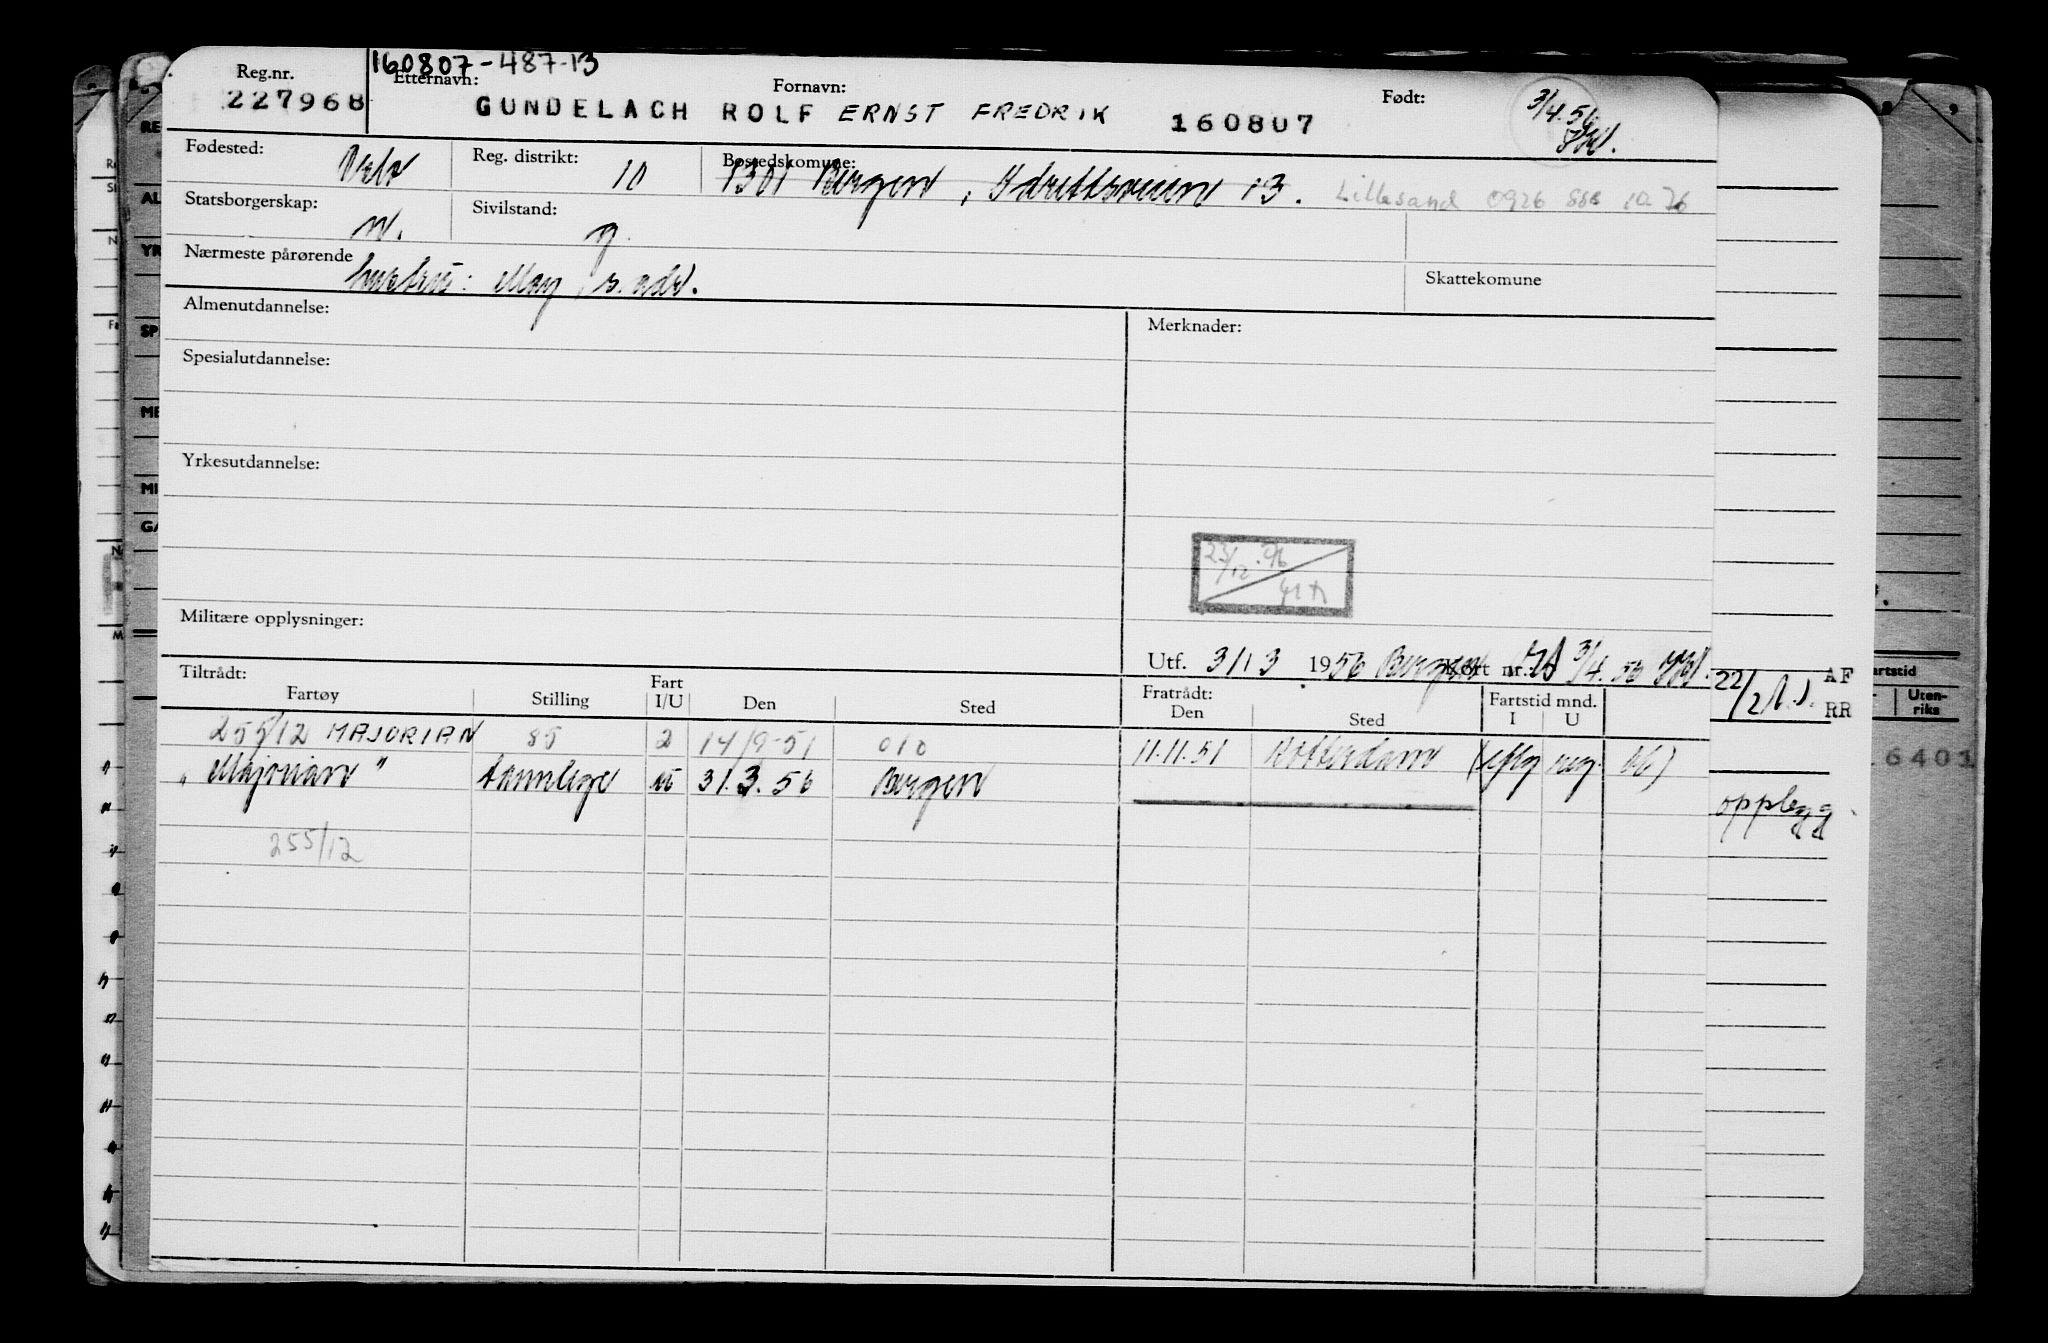 160807-487-13
Reg.nr. Etternavn: Fornavn: Født:
227968 GUNDELACH ROLF ERNST FREDRIK 160807 3/4.56
Fødested: Reg. distrikt: 10 Bostedskomune: 1301 Bergen, Idrettsveien 13. Lillesand 0926 10.76
Statsborgerskap: n. Sivilstand: g.
Nærmeste pårørende hustru: May, s. adr.
Skattekomune
Almenutdannelse: Merknader:
Spesialutdannelse:
Yrkesutdannelse:
23/12
Militære opplysninger:
Utf. 31/3 1956 Bergen Kort nr.: 3/4.56
Tiltrådt: Fratrådt:
Fartøy Stilling Fart I/U Den Sted Den Sted Fartstid mnd. I U
255/12 MAJORIAN 85 2 14/9-51 010 11.11.51 Rotterdam
"Majorian" 31.3.56 Bergen
255/12
22/2
AF
RR
opplegg
artstid
Uten-
riks
6401
RE
AL
YR
SP
ME
MI
GA